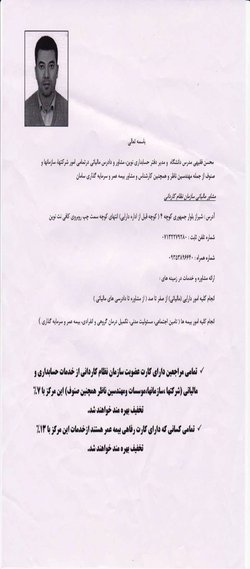 باسمه تعالی
محسن فقیهی مدرس دانشگاه و مدیر دفتر حسابداری نوین، مشاور و دادرس مالیاتی درتمامی امور شرکتها، سازمانها و
صنوف از جمله مهندسین ناظر و همچنین کارشناس و مشاور بیمه عمر و سرمایه گذاری سامان
مشاور مالیاتی سازمان نظام کاردانی
آدرس : شیراز بلوار جمهوری کوچه ۴ ( کوچه قبل از اداره دارایی) انتهای کوچه سمت چپ روبروی کافی نت نوین
شماره تلفن ثابت :
شماره همراه :
ارائه مشاوره و خدمات در زمینه های :
انجام کلیه امور دارایی (مالیاتی ) از صفر تا صد ( از مشاوره تا دادرسی های مالیاتی )
انجام کلیه امور بیمه ها ( تامین اجتماعی، مسئولیت مدنی، تکمیل درمان گروهی و انفرادی، بیمه عمر و سرمایه گذاری )
✓ تمامی مراجعین دارای کارت عضویت سازمان نظام کاردانی از خدمات حسابداری و
مالیاتی (شرکتها ،سازمانها،موسسات ومهندسین ناظر همچنین صنوف) این مرکز با ۷٪
تخفیف بهره مند خواهند شد.
✓ تمامی کسانی که دارای کارت رفاهی بیمه عمر هستند ازخدمات این مرکز با ۱۳٪
تخفیف بهره مند خواهند شد.